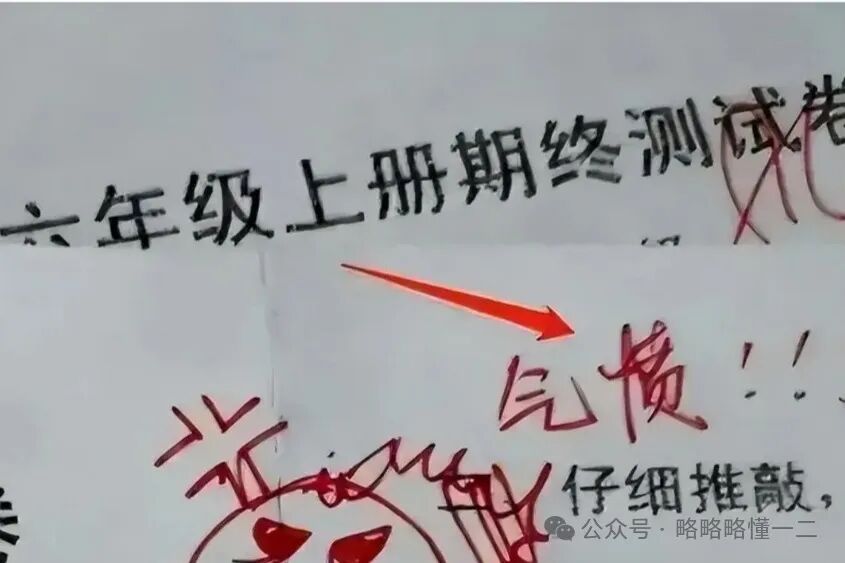 六年级上册期终测试卷
气愤!!
仔细推敲,
公众号·略略略懂一二